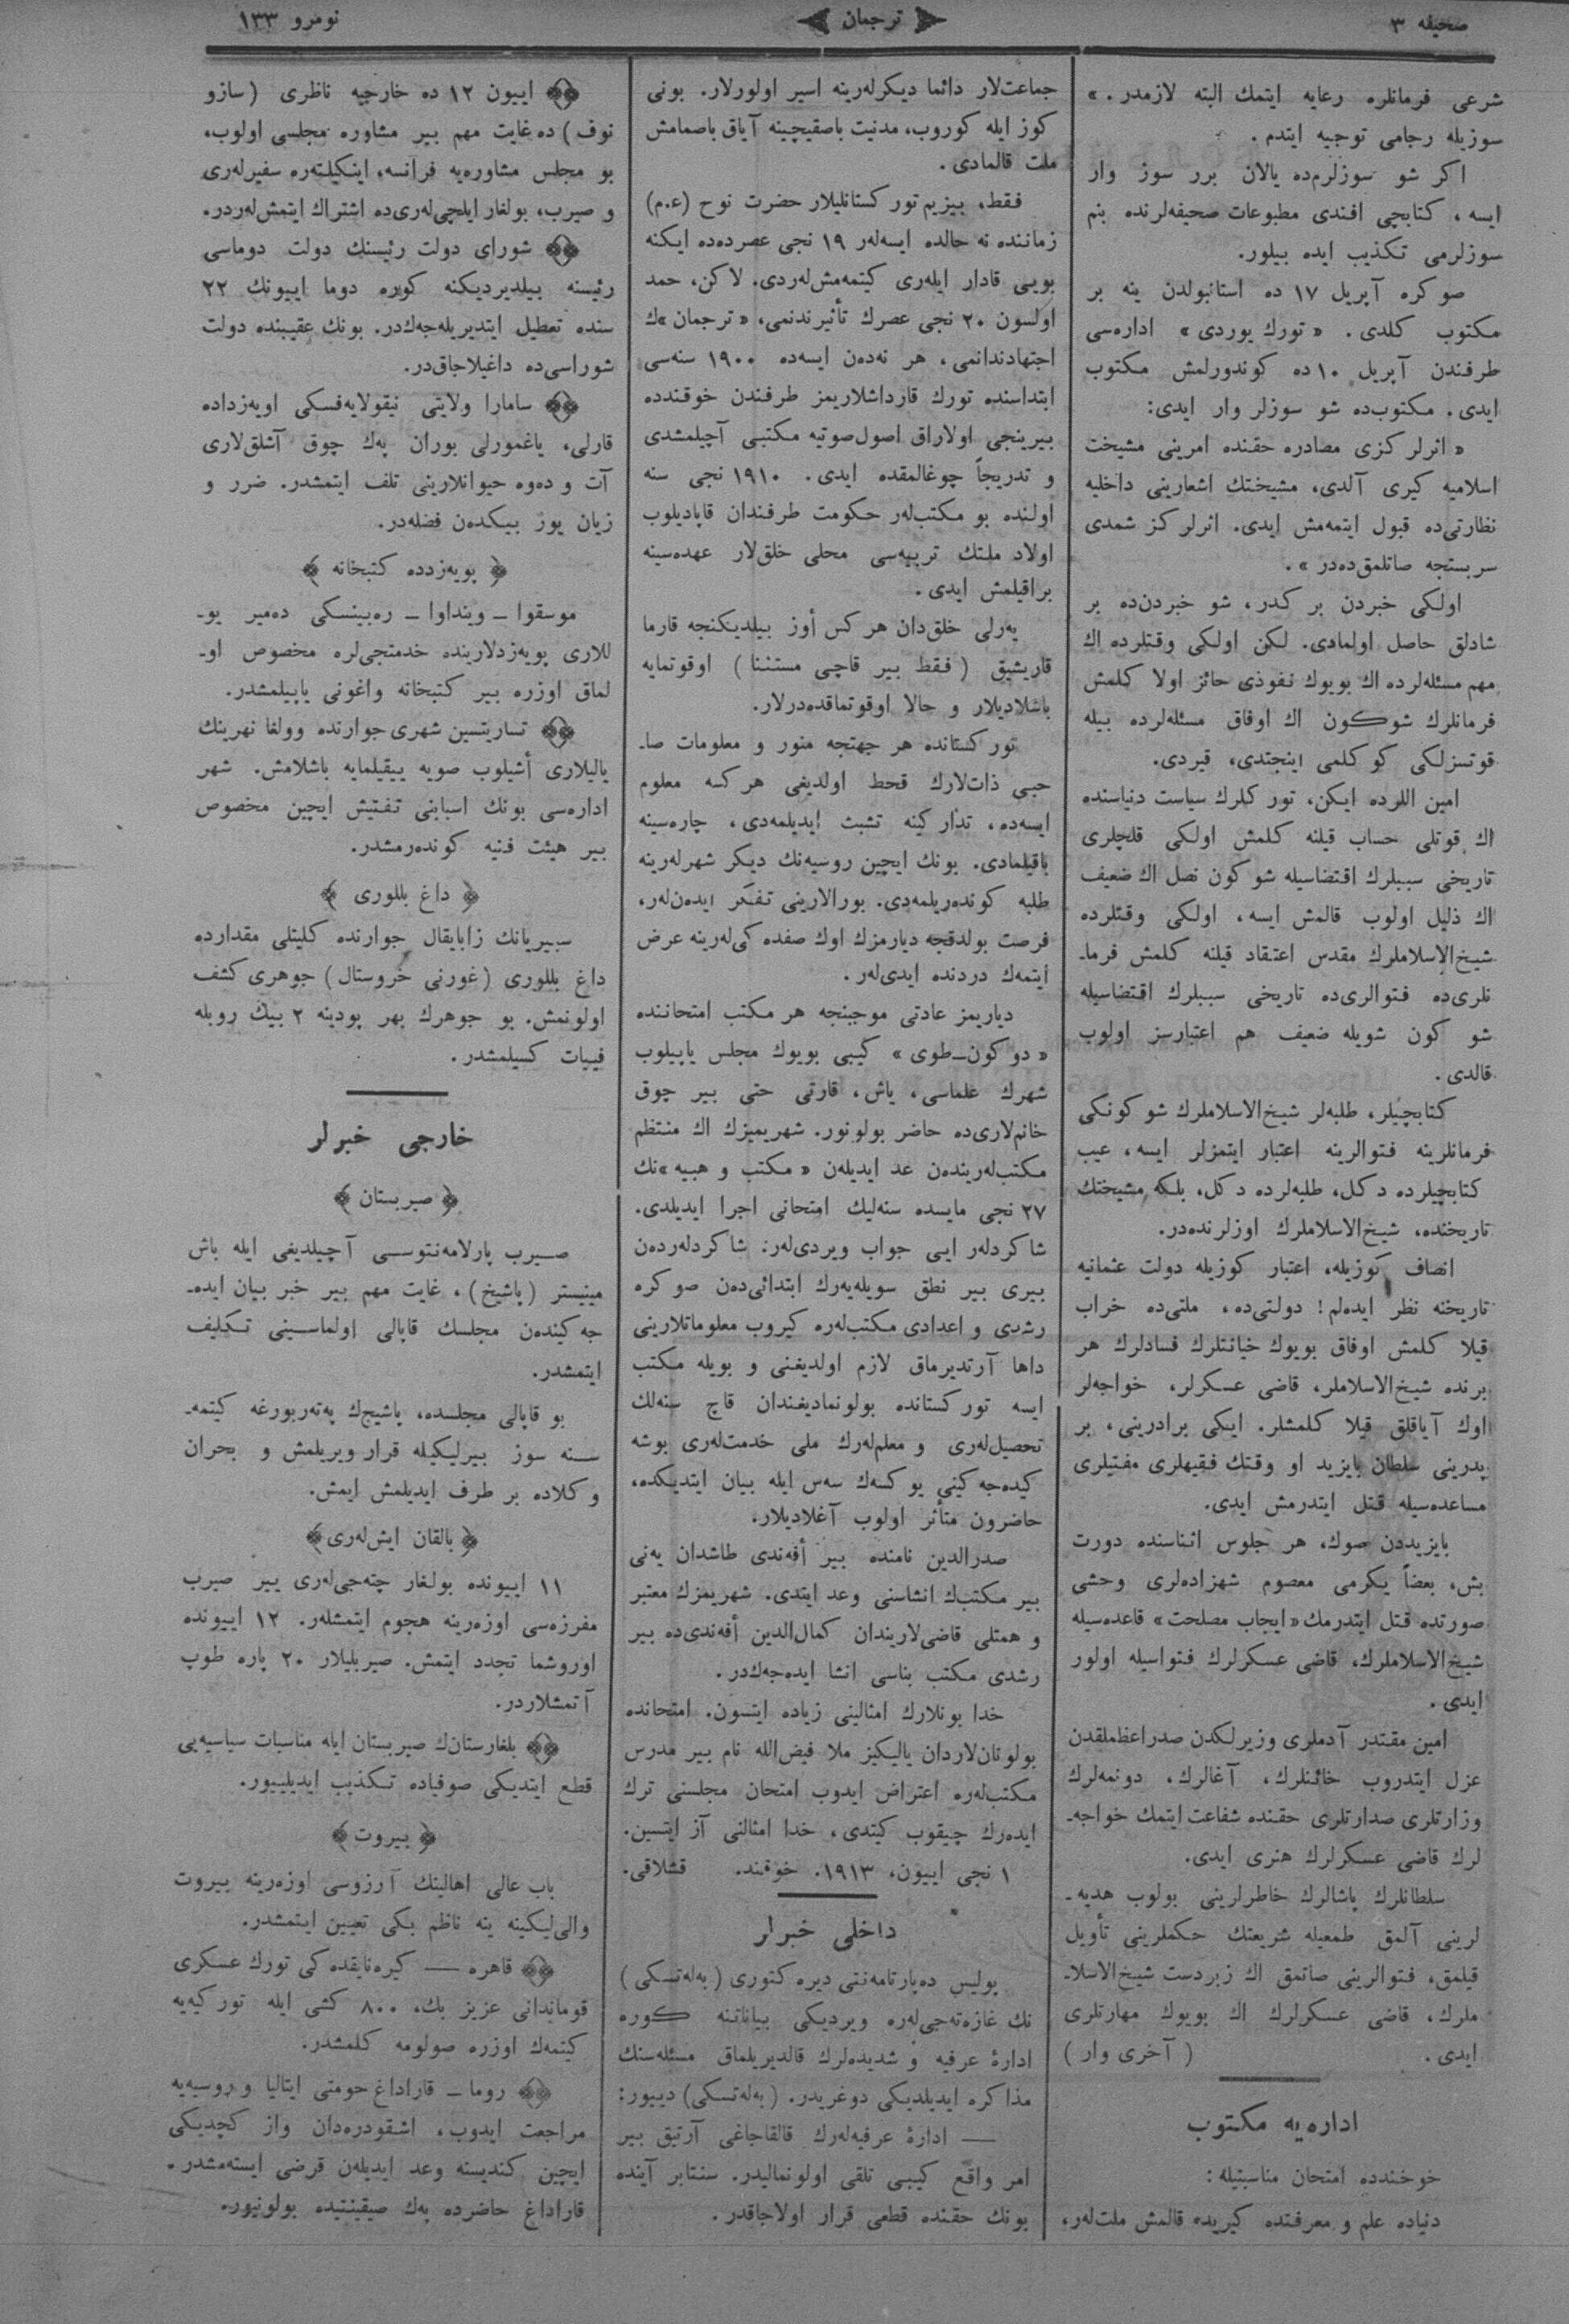 صحیفه ۳
ترجمان
نومرو ۱۳۳
شرعی فرمانلره رعایه ایتمك البته لازمدر. »
سوزیله رجامی توجیه ایتدم.
اكر شو سوزلرمده یالان برر سوز وار
ایسه، كتابچی افندی مطبوعات صحیفه‌لرنده بنم
سوزلرمی تكذیب ایده بیلور.
صوكره آپریل ۱۷ ده استانبولدن ینه بر
مكتوب كلدی. « تورك یوردی » اداره‌سی
طرفندن آپریل ۱۰ ده كوندورلمش مكتوب
ایدی. مكتوب‌ده شو سوزلر وار ایدی:
« اثرلر كزی مصادره حقنده امرینی مشیخت
اسلامیه كیری آلدی، مشیختك اشعارینی داخلیه
نظارتی‌ده قبول ایتمه‌مش ایدی. اثرلر كز شمدی
سربستجه صاتلمق‌ده‌در ».
اولكی خبردن بر كدر، شو خبردن‌ده بر
شادلق حاصل اولمادی. لكن اولكی وقتلرده اك
مهم مسئله‌لرده اك بویوك نفوذی حائز اولا كلمش
فرمانلرك شو كون اك اوفاق مسئله‌لرده بیله
قوتسزلكی كوكلمی اینجتدی، قیردی.
امین اللرده ایكن، توركلرك سیاست دنیاسنده
اك قوتلی حساب قیلنه كلمش اولكی قلچلری
تاریخی سببلرك اقتضاسیله شو كون نصل اك ضعیف
اك ذلیل اولوب قالمش ایسه، اولكی وقتلرده
شیخ‌الاسلاملرك مقدس اعتقاد قیلنه كلمش فرما-
نلری‌ده فتوالری‌ده تاریخی سببلرك اقتضاسیله
شو كون شویله ضعیف هم اعتبارسز اولوب
قالدی.
كتابچیلر، طلبه‌لر شیخ‌الاسلاملرك شو كونكی
فرمانلرینه فتوالرینه اعتبار ایتمزلر ایسه، عیب
كتابچیلرده دكل، طلبه‌لرده دكل، بلكه مشیختك
تاریخنده، شیخ‌الاسلاملرك اوزلرنده‌در.
انصاف كوزیله، اعتبار كوزیله دولت عثمانیه
تاریخنه نظر ایده‌لم! دولتی‌ده، ملتی‌ده خراب
قیلا كلمش اوفاق بویوك خیانتلرك فسادلرك هر
برنده شیخ‌الاسلاملر، قاضی عسكرلر، خواجه‌لر
اوك آیاقلق قیلا كلمشلر. ایكی برادرینی، بر
پدرینی سلطان بایزید او وقتك فقیهلری مفتیلری
مساعده‌سیله قتل ایتدرمش ایدی.
بایزیددن صوك، هر جلوس اثناسنده دورت
بش، بعضاً یكرمی معصوم شهزاده‌لری وحشی
صورتده قتل ایتدرمك « ایجاب مصلحت » قاعده‌سیله
شیخ‌الاسلاملرك، قاضی عسكرلرك فتواسیله اولور
ایدی.
امین مقتدر آدملری وزیرلكدن صدراعظملقدن
عزل ایتدروب خائنلرك، آغالرك، دونمه‌لرك
وزارتلری صدارتلری حقنده شفاعت ایتمك خواجه-
لرك قاضی عسكرلرك هنری ایدی.
سلطانلرك پاشالرك خاطرلرینی بولوب هدیه-
لرینی آلمق طمعیله شریعتك حكملرینی تأویل
قیلمق، فتوالرینی صاتمق اك زبردست شیخ‌الاسلا-
ملرك، قاضی عسكرلرك اك بویوك مهارتلری
ایدی. ( آخری وار )
اداره‌یه مكتوب
خوخندده امتحان مناسبتیله:
دنیاده علم و معرفتده كیریده قالمش ملت‌لەر،
جماعت‌لار دائما دیكرلەرینه اسیر اولورلار. بونی
كوز ایله كوروب، مدنیت باصقیچینه آیاق باصمامش
ملت قالمادی.
فقط، بیزیم توركستانلیلار حضرت نوح (ع.م)
زماننده نه حالده ایسه‌لەر ۱۹ نجی عصرده‌ده ایكنه
بویی قادار ایله‌ری كیتمه‌مش‌لەردی. لاكن، حمد
اولسون ۲۰ نجی عصرك تأثیرندنمی، « ترجمان »ك
اجتهادندانمی، هر نه‌دەن ایسه‌ده ۱۹۰۰ سنه‌سی
ابتداسنده تورك قارداشلاریمز طرفندن خوقندده
بیرینجی اولاراق اصول‌صوتیه مكتبی آچیلمشدی
و تدریجاً چوغالمقده ایدی. ۱۹۱۰ نجی سنه
اولنده بو مكتب‌لەر حكومت طرفندان قاپادیلوب
اولاد ملتك تربیه‌سی محلی خلق‌لار عهده‌سینه
براقیلمش ایدی.
یه‌رلی خلق‌دان هر كس أوز بیلدیكنجه قارما
قاریشیق ( فقط بیر قاچی مستثنا ) اوقوتمایه
باشلادیلار و حالا اوقوتماقده‌درلار.
توركستانده هر جهتجه منور و معلومات صا-
حبی ذات‌لارك قحط اولدیغی هركسه معلوم
ایسه‌ده، تداركینه تشبث ایدیلمه‌دی، چاره‌سینه
باقیلمادی. بونك ایچین روسیه‌نك دیكر شهرلەرینه
طلبه كونده‌ریلمه‌دی. بورالارینی تفكر ایدەن‌لەر،
فرصت بولدقجه دیارمزك اوك صفده كی‌لەرینه عرض
ایتمەك دردنده ایدی‌لەر.
دیاریمز عادتی موجبنجه هر مكتب امتحاننده
« دوكون-طوی » كیبی بویوك مجلس یاپیلوب
شهرك علماسی، یاش، قارتی حتی بیر چوق
خانم‌لاری‌ده حاضر بولونور. شهریمیزك اك منتظم
مكتب‌لەریندەن عد ایدیلەن « مكتب وهبیه »نك
۲۷ نجی مایسده سنه‌لیك امتحانی اجرا ایدیلدی.
شاكردلەر ایی جواب ویردی‌لەر: شاكردلەردەن
بیری بیر نطق سویله‌یه‌رك ابتدائی‌دەن صوكره
رشدی و اعدادی مكتب‌لەره كیروب معلوماتلارینی
داها آرتدیرماق لازم اولدیغنی و بویله مكتب
ایسه توركستانده بولونمادیغندان قاچ سنه‌لك
تحصیل‌لەری و معلم‌لەرك ملی خدمت‌لەری بوشه
كیده‌جه‌كینی یوكسەك سەس ایله بیان ایتدیكده،
حاضرون متأثر اولوب آغلادیلار.
صدرالدین نامنده بیر أفەندی طاشدان یەنی
بیر مكتب‌ك انشاسنی وعد ایتدی. شهریمزك معتبر
و همتلی قاضی‌لاریندان كمال‌الدین أفەندی‌ده بیر
رشدی مكتب بناسی انشا ایده‌جه‌ك‌در.
خدا بونلارك امثالینی زیاده ایتسون. امتحانده
بولونان‌لاردان یالیكیز ملا فیض‌الله نام بیر مدرس
مكتب‌لەره اعتراض ایدوب امتحان مجلسنی ترك
ایده‌رك چیقوب كیتدی، خدا امثالنی آز ایتسین.
۱ نجی اییون، ۱۹۱۳. خوقند. قشلاقی.
داخلی خبرلر
پولیس ده‌پارتامه‌نتی دیره‌كتوری ( به‌له‌تسكی )
نك غازه‌ته‌جی‌لەره ویردیكی بیاناتنه كوره
ادارهٔ عرفیه و شدیده‌لرك قالدیریلماق مسئله‌سنك
مذاكره ایدیلدیكی دوغریدر. ( به‌له‌تسكی ) دییور:
— ادارهٔ عرفیه‌لەرك قالقاجاغی آرتیق بیر
امر واقع كیبی تلقی اولونمالیدر. سنتابر آینده
بونك حقنده قطعی قرار اولاجاقدر.
اییون ۱۲ ده خارجیه ناظری ( سازو
نوف ) ده غایت مهم بیر مشاوره مجلسی اولوب،
بو مجلس مشاوره‌یه فرانسه، اینكیلتەره سفیرلەری
و صیرب، بولغار ایلچی‌لەری‌ده اشتراك ایتمش‌لەردر.
شورای دولت رئیسنك دولت دوماسی
رئیسنه بیلدیردیكنه كوره دوما اییونك ۲۲
سنده تعطیل ایتدیریله‌جه‌كدر. بونك عقیبنده دولت
شوراسی‌ده داغیلاجاق‌در.
سامارا ولایتی نیقولایه‌فسكی اویه‌زداده
قارلی، یاغمورلی بوران پەك چوق آشلق‌لاری
آت و دەوه حیوانلارینی تلف ایتمشدر. ضرر و
زیان یوز بیكدەن فضله‌در.
﴿ پویه‌زدده كتبخانه ﴾
موسقوا - وینداوا - ره‌بینسكی دەمیر یو-
للاری پویه‌زدلارینده خدمتجی‌لره مخصوص او-
لماق اوزره بیر كتبخانه واغونی یاپیلمشدر.
تساریتسین شهری جوارنده وولغا نهرینك
یالیلاری أشیلوب صویه ییقیلمایه باشلامش. شهر
اداره‌سی بونك اسبابنی تفتیش ایچین مخصوص
بیر هیئت فنیه كونده‌رمشدر.
﴿ داغ بللوری ﴾
سیبریانك زابایقال جوارنده كلیتلی مقدارده
داغ بللوری ( غورنی خروستال ) جوهری كشف
اولونمش. بو جوهرك بهر پودینه ۲ بیك روبله
فییات كسیلمشدر.
خارجی خبرلر
﴿ صیربستان ﴾
صیرب پارلامه‌نتوسی آچیلدیغی ایله باش
مینیستر ( پاشیخ )، غایت مهم بیر خبر بیان ایده-
جه‌كیندەن مجلسك قاپالی اولماسینی تكلیف
ایتمشدر.
بو قاپالی مجلسده، پاشیچ‌ك په‌ته‌ربورغه كیتمه-
سنه سوز بیرلیكیله قرار ویریلمش و بحران
وكلاده بر طرف ایدیلمش ایمش.
﴿ بالقان ایش‌لەری ﴾
۱۱ اییونده بولغار چته‌جی‌لەری بیر صیرب
مفرزه‌سی اوزه‌رینه هجوم ایتمشلەر. ۱۲ اییونده
اوروشما تجدد ایتمش. صیربلیلار ۲۰ پاره طوپ
آتمشلاردر.
بلغارستان‌ك صیربستان ایله مناسبات سیاسیه‌یی
قطع ایتدیكی صوفیاده تكذیب ایدیلییور.
﴿ بیروت ﴾
باب عالی اهالینك آرزوسی اوزه‌رینه بیروت
والی‌لیكینه ینه ناظم بكی تعیین ایتمشدر.
قاهره — كیره‌نایقده كی تورك عسكری
قوماندانی عزیز بك، ۸۰۰ كشی ایله توركیه‌یه
كیتمەك اوزره صولومه كلمشدر.
روما - قاراداغ حومتی ایتالیا و روسیه‌یه
مراجعت ایدوب، اشقودره‌دان واز كچدیكی
ایچین كندیسنه وعد ایدیلەن قرضی ایسته‌مشدر.
قاراداغ حاضرده پەك صیقینتیده بولونیور.